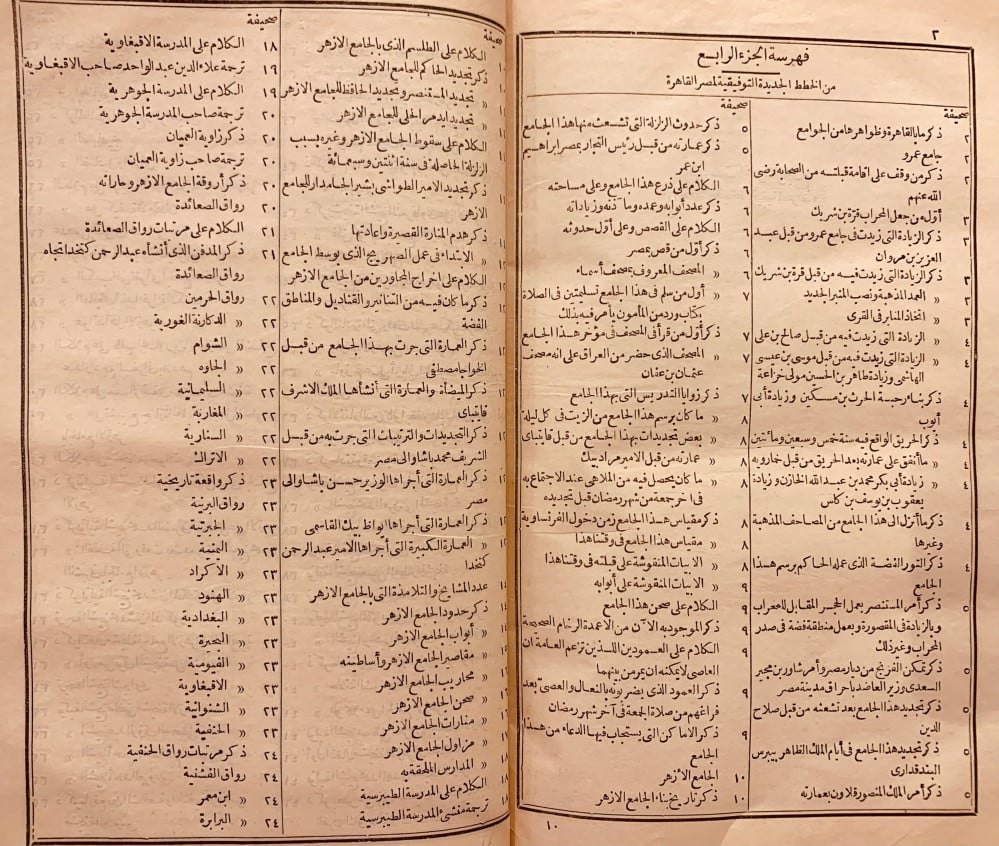 ٢
فهرسة الجزء الرابع
من الخطط الجديدة التوفيقية لمصر القاهرة
صحيفة
٢ ذكر ما بالقاهرة وظواهرها من الجوامع
٢ جامع عمرو
٢ ذكر من وقف على اقامة قبلته من الصحابة رضى
الله عنهم
٣ أول من جعل المحراب قرة بن شريك
٣ ذكر الزيادة التى زيدت فى جامع عمرو من قبل عبد
العزيز بن مروان
٣ ذكر الزيادة التى زيدت فيه من قبل قرة بن شريك
٣ « العمد المذهبة ونصب المنبر الجديد
٣ « اتخاذ المنابر فى القرى
٤ « الزيادة التى زيدت فيه من قبل صالح بن على
٤ « الزيادة التى زيدت فيه من قبل موسى بن عيسى
الهاشمى وزيادة طاهر بن الحسين مولى خزاعة
٤ ذكر بناء رحبة الحرث بن مسكين وزيادة أبى
أيوب
٤ ذكر الحريق الواقع فيه سنة خمس وسبعين ومائتين
٤ « ما أنفق على عمارته بعد الحريق من قبل خمارويه
٤ « زيادة أبى بكر محمد بن عبد الله الخازن وزيادة
يعقوب بن يوسف بن كاس
٤ ذكر ما أنزل الى هذا الجامع من المصاحف المذهبة
وغيرها
٤ ذكر التنور الفضة الذى عمله الحاكم برسم هذا
الجامع
٥ ذكر أمر المستنصر بعمل الحجر المقابل للمحراب
وبالزيادة فى المقصورة وبعمل منطقة فضة فى صدر
المحراب وغير ذلك
٥ ذكر تمكن الفرنج من ديار مصر وأمر شاور بن مجير
السعدى وزير العاضد باحراق مدينة مصر
٥ ذكر تجديد هذا الجامع بعد تشعثه من قبل صلاح
الدين
٥ ذكر تجديد هذا الجامع فى أيام الملك الظاهر بيبرس
البندقدارى
٥ ذكر أمر الملك المنصور قلاون بعمارته
صحيفة
٥ ذكر حدوث الزلزلة التى تشعث منها هذا الجامع
٥ ذكر عمارته من قبل رئيس التجار بمصر ابراهيم
ابن عمر
٦ الكلام على ذرع هذا الجامع وعلى مساحته
٦ ذكر عدد أبوابه وعمده ومآذنه وزياداته
٦ الكلام على القصص وعلى أول حدوثه
٦ ذكر أول من قص بمصر
٦ « المصحف المعروف بمصحف أسماء
٧ « أول من سلم فى هذا الجامع تسليمتين فى الصلاة
بكتاب ورد من المأمون يأمر فيه بذلك
٧ ذكر أول من قرأ فى المصحف فى مؤخر هذا الجامع
٧ « المصحف الذى حضر من العراق على انه مصحف
عثمان بن عفان
٧ ذكر زوايا التدريس التى بهذا الجامع
٨ « ما كان برسم هذا الجامع من الزيت فى كل ليلة
٨ « بعض تجديدات بهذا الجامع من قبل قايتباى
٨ « عمارته من قبل الامير مراد بيك
٨ « ما كان يحصل فيه من الملاهى عند الاجتماع به
فى اخر جمعة من شهر رمضان قبل تجديده
٨ ذكر مقياس هذا الجامع زمن دخول الفرنساوية
٨ « مقياس هذا الجامع فى وقتنا هذا
٨ « الابيات المنقوشة على قبلته فى وقتنا هذا
٩ « الابيات المنقوشة على أبوابه
٩ الكلام على صحن هذا الجامع
٩ ذكر الموجود به الآن من الاعمدة الرخام الصحيحة
٩ الكلام على العمودين اللذين تزعم العامة ان
العاصى لا يمكنه ان يمر من بينهما
٩ ذكر العمود الذى يضربونه بالنعال والعصى بعد
فراغهم من صلاة الجمعة فى آخر شهر رمضان
٩ ذكر الاماكن التى يستجاب فيها الدعاء من هذا
الجامع
١٠ الجامع الأزهر
١٠ ذكر تاريخ بناء الجامع الازهر
١٠
صحيفة
الكلام على الطلسم الذى بالجامع الازهر
ذكر تجديد الحاكم للجامع الازهر
« تجديد المستنصر وتجديد الحافظ للجامع الازهر
« تجديد ايدمر الحلى للجامع الازهر
الكلام على سقوط الجامع الازهر وغيره بسبب
الزلزلة الحاصلة فى سنة اثنتين وسبعمائة
ذكر تجديد الامير الطواشى بشير الجامدار للجامع
الازهر
ذكر هدم المنارة القصيرة واعادتها
« الابتداء فى عمل الصهريج الذى بوسط الجامع
الكلام على اخراج المجاورين من الجامع الازهر
ذكر ما كان فيه من التنانير والقناديل والمناطق
الفضة
ذكر العمارة التى جرت بهذا الجامع من قبل
الخواجا مصطفى
ذكر الميضأة والعمارة التى أنشأها الملك الاشرف
قايتباى
ذكر التجديدات والترتيبات التى جرت به من قبل
الشريف محمد باشا والى مصر
ذكر العمارة التى أجراها الوزير حسن باشا والى
مصر
ذكر العمارة التى أجراها ايواظ بيك القاسمى
« العمارة الكبيرة التى أجراها الامير عبد الرحمن
كتخدا
عدد المشايخ والتلامذة التى بالجامع الازهر
ذكر حدود الجامع الازهر
« أبواب الجامع الازهر
« مقاصير الجامع الازهر وأساطينه
« محاريب الجامع الازهر
« صحن الجامع الازهر
« منارات الجامع الازهر
« مزاول الجامع الازهر
« المدارس الملحقة به
الكلام على المدرسة الطيبرسية
ترجمة منشىء المدرسة الطيبرسية
صحيفة
١٨ الكلام على المدرسة الاقبغاوية
١٩ ترجمة علاء الدين عبد الواحد صاحب الاقبغاوية
١٩ الكلام على المدرسة الجوهرية
٢٠ ترجمة صاحب المدرسة الجوهرية
٢٠ ذكر زاوية العميان
٢٠ ترجمة صاحب زاوية العميان
٢٠ ذكر أروقة الجامع الازهر وحاراته
٢٠ رواق الصعائدة
٢١ الكلام على مرتبات رواق الصعائدة
٢١ ذكر المدفن الذى أنشأه عبد الرحمن كتخدا تجاه
رواق الصعائدة
٢٢ رواق الحرمين
٢٢ « الدكارنة الغورية
٢٢ « الشوام
٢٢ « الجاوه
٢٢ « السليمانية
٢٢ « المغاربة
٢٢ « السنارية
٢٢ « الاتراك
٢٣ ذكر واقعة تاريخية
٢٣ رواق البرنية
٢٣ « الجبرتية
٢٣ « اليمنية
٢٣ « الأكراد
٢٣ « الهنود
٢٣ « البغدادية
٢٣ « البحيرة
٢٣ « الفيومية
٢٣ « الاقبغاوية
٢٣ « الشنوانية
٢٣ « الحنفية
٢٤ ذكر مرتبات رواق الحنفية
٢٤ رواق الفشنية
٢٤ « ابن معمر
٢٤ « البرابرة